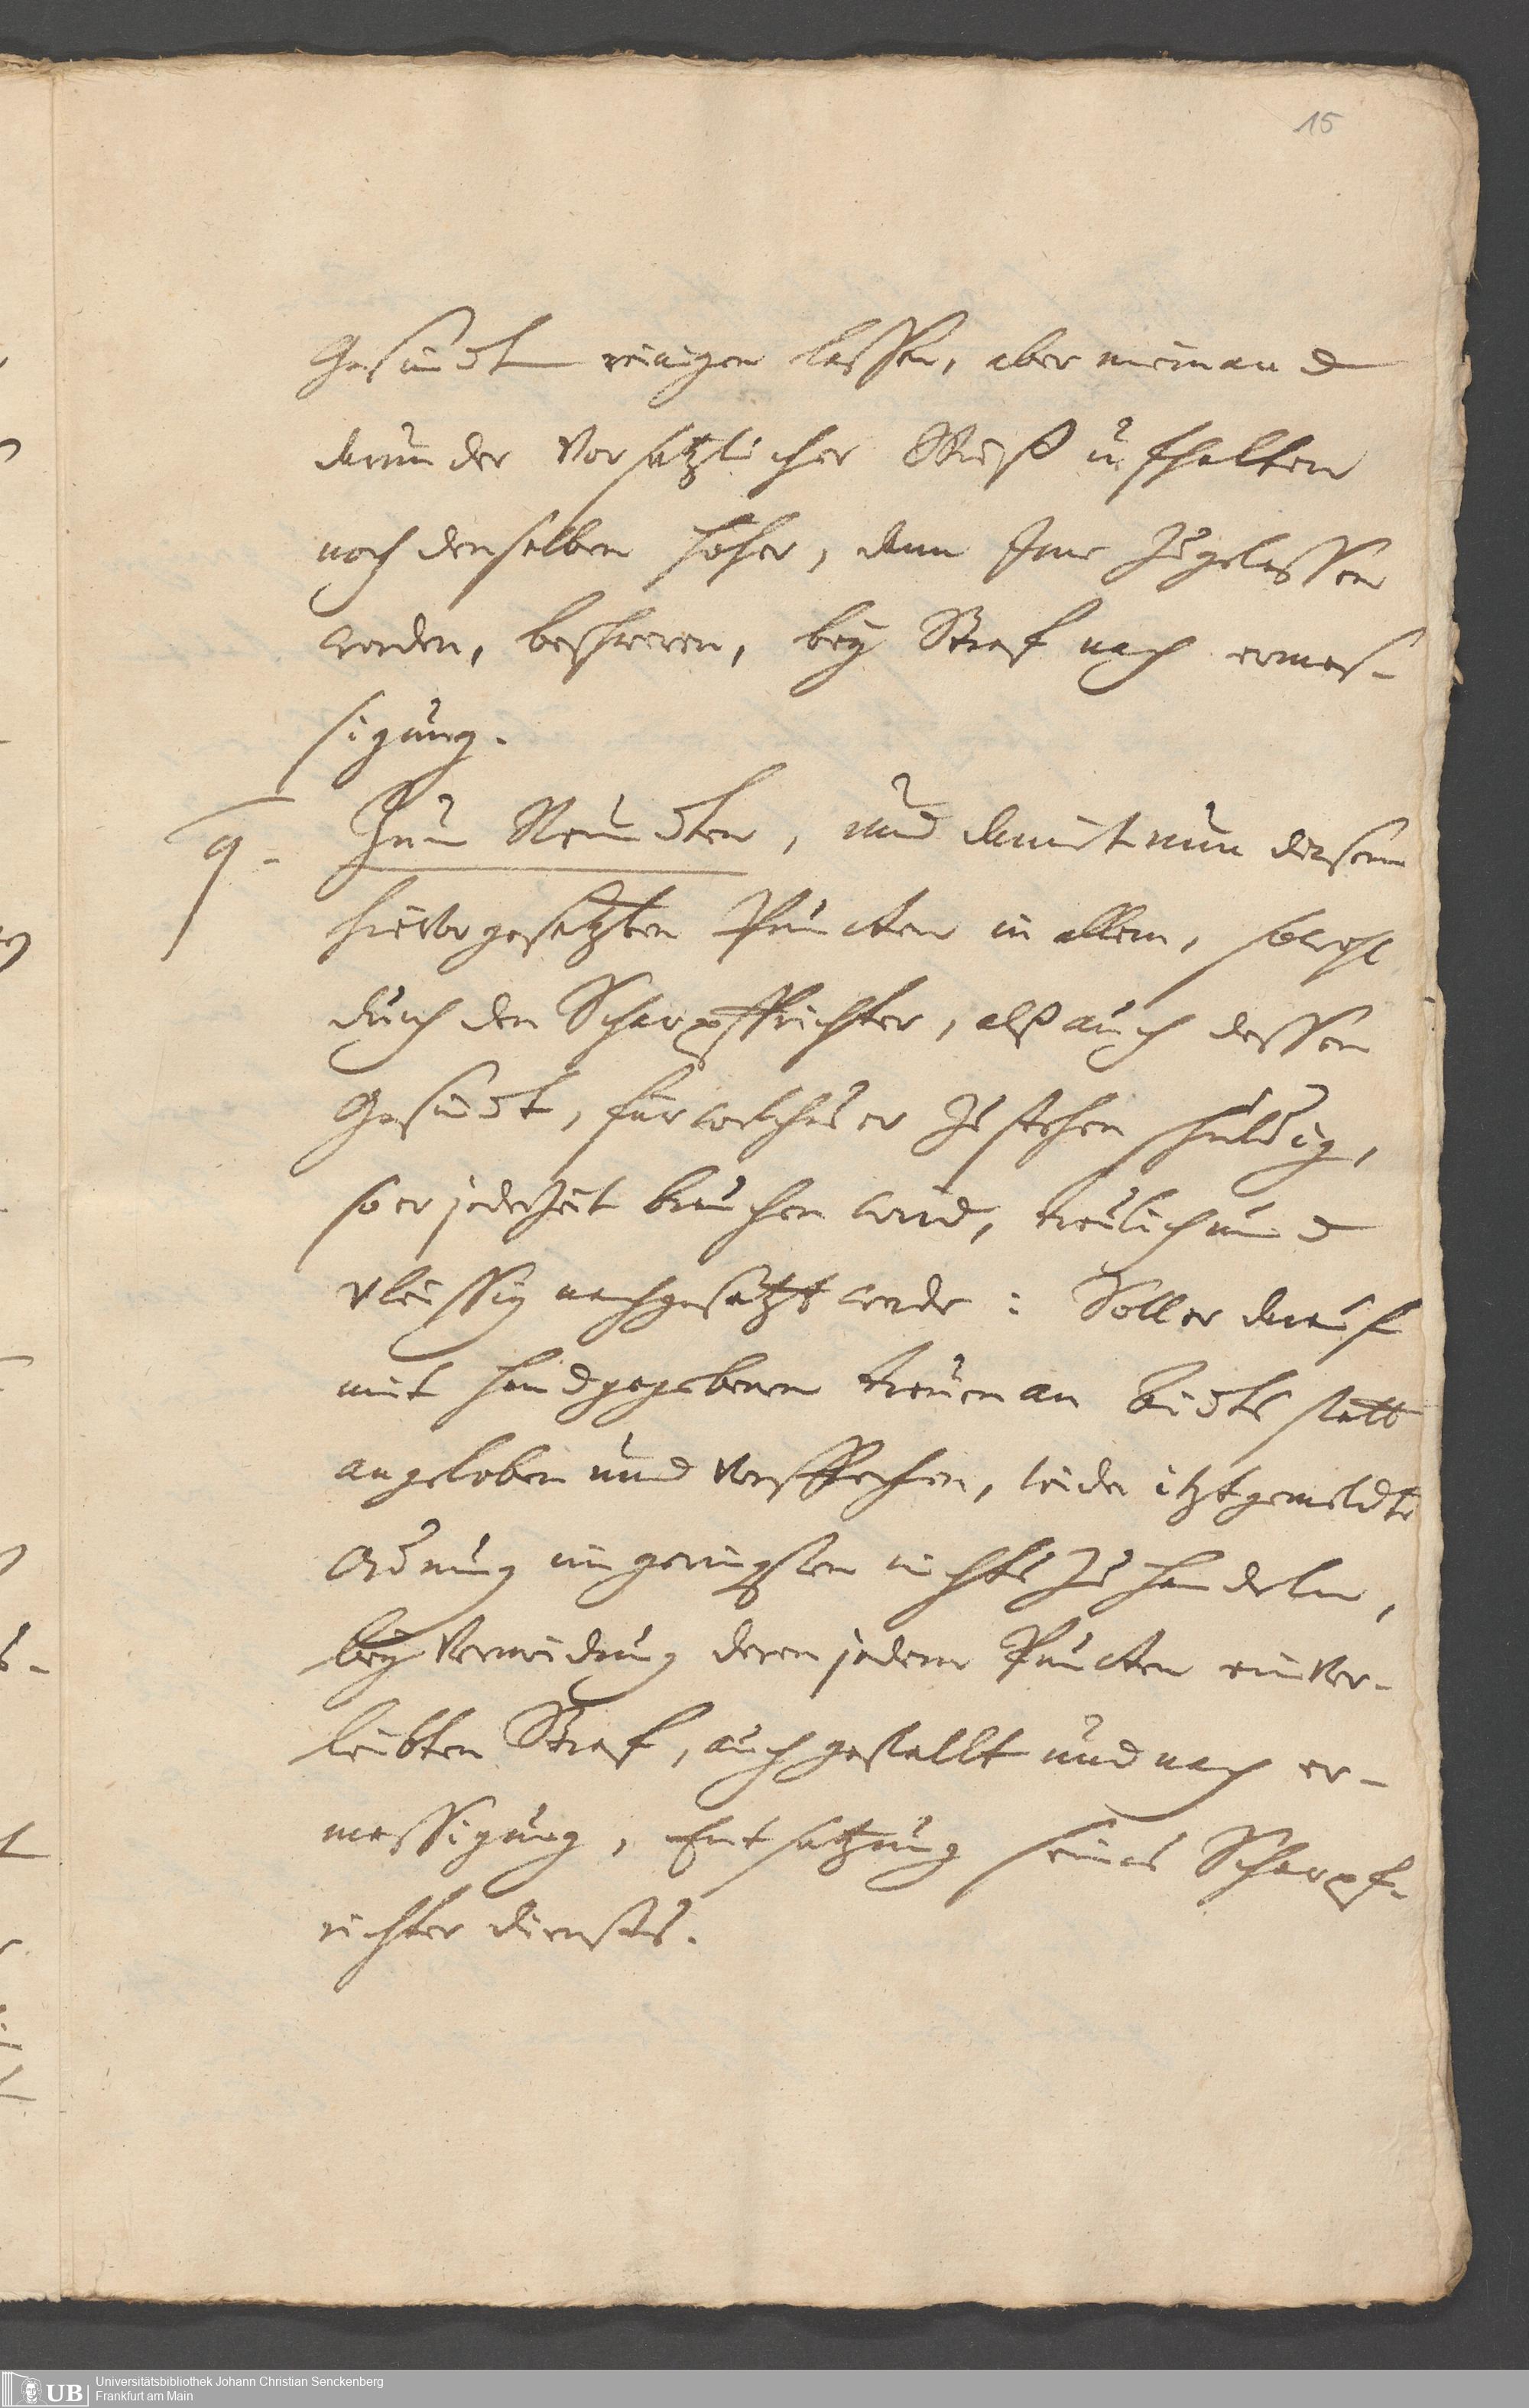 15
Gesindt reinigen lassen, aber niemand
darunder vorsetzlicher Weiß ufhalten
noch denselben höher, dann Ime zugelassen
worden, beschweren, bey Straf nach ermes-
sigung.
9. Zum Neundten, und damit nun diesem
hievorgesetzten Puncten in allem, sowohl
durch den Scharpffrichter, alß auch dessen
Gesindt, für welches er zustehen schuldig,
so er jederzeit brauchen wird, treulich und
vleissig nachgesetzt werde: Soll er darauf
mit handgegebenen treuen an Eidts statt
angeloben und versprechen, wider itztgemeldte
Ordnung im geringsten nichts zu handeln,
bey Vermeidung deren jedem Puncten einver-
leibten Straf, auch gestellt und nach er-
messigung, Entsatzung seines Scharpf-
richter diensts.
Universitätsbibliothek Johann Christian Senckenberg
Frankfurt am Main
UB